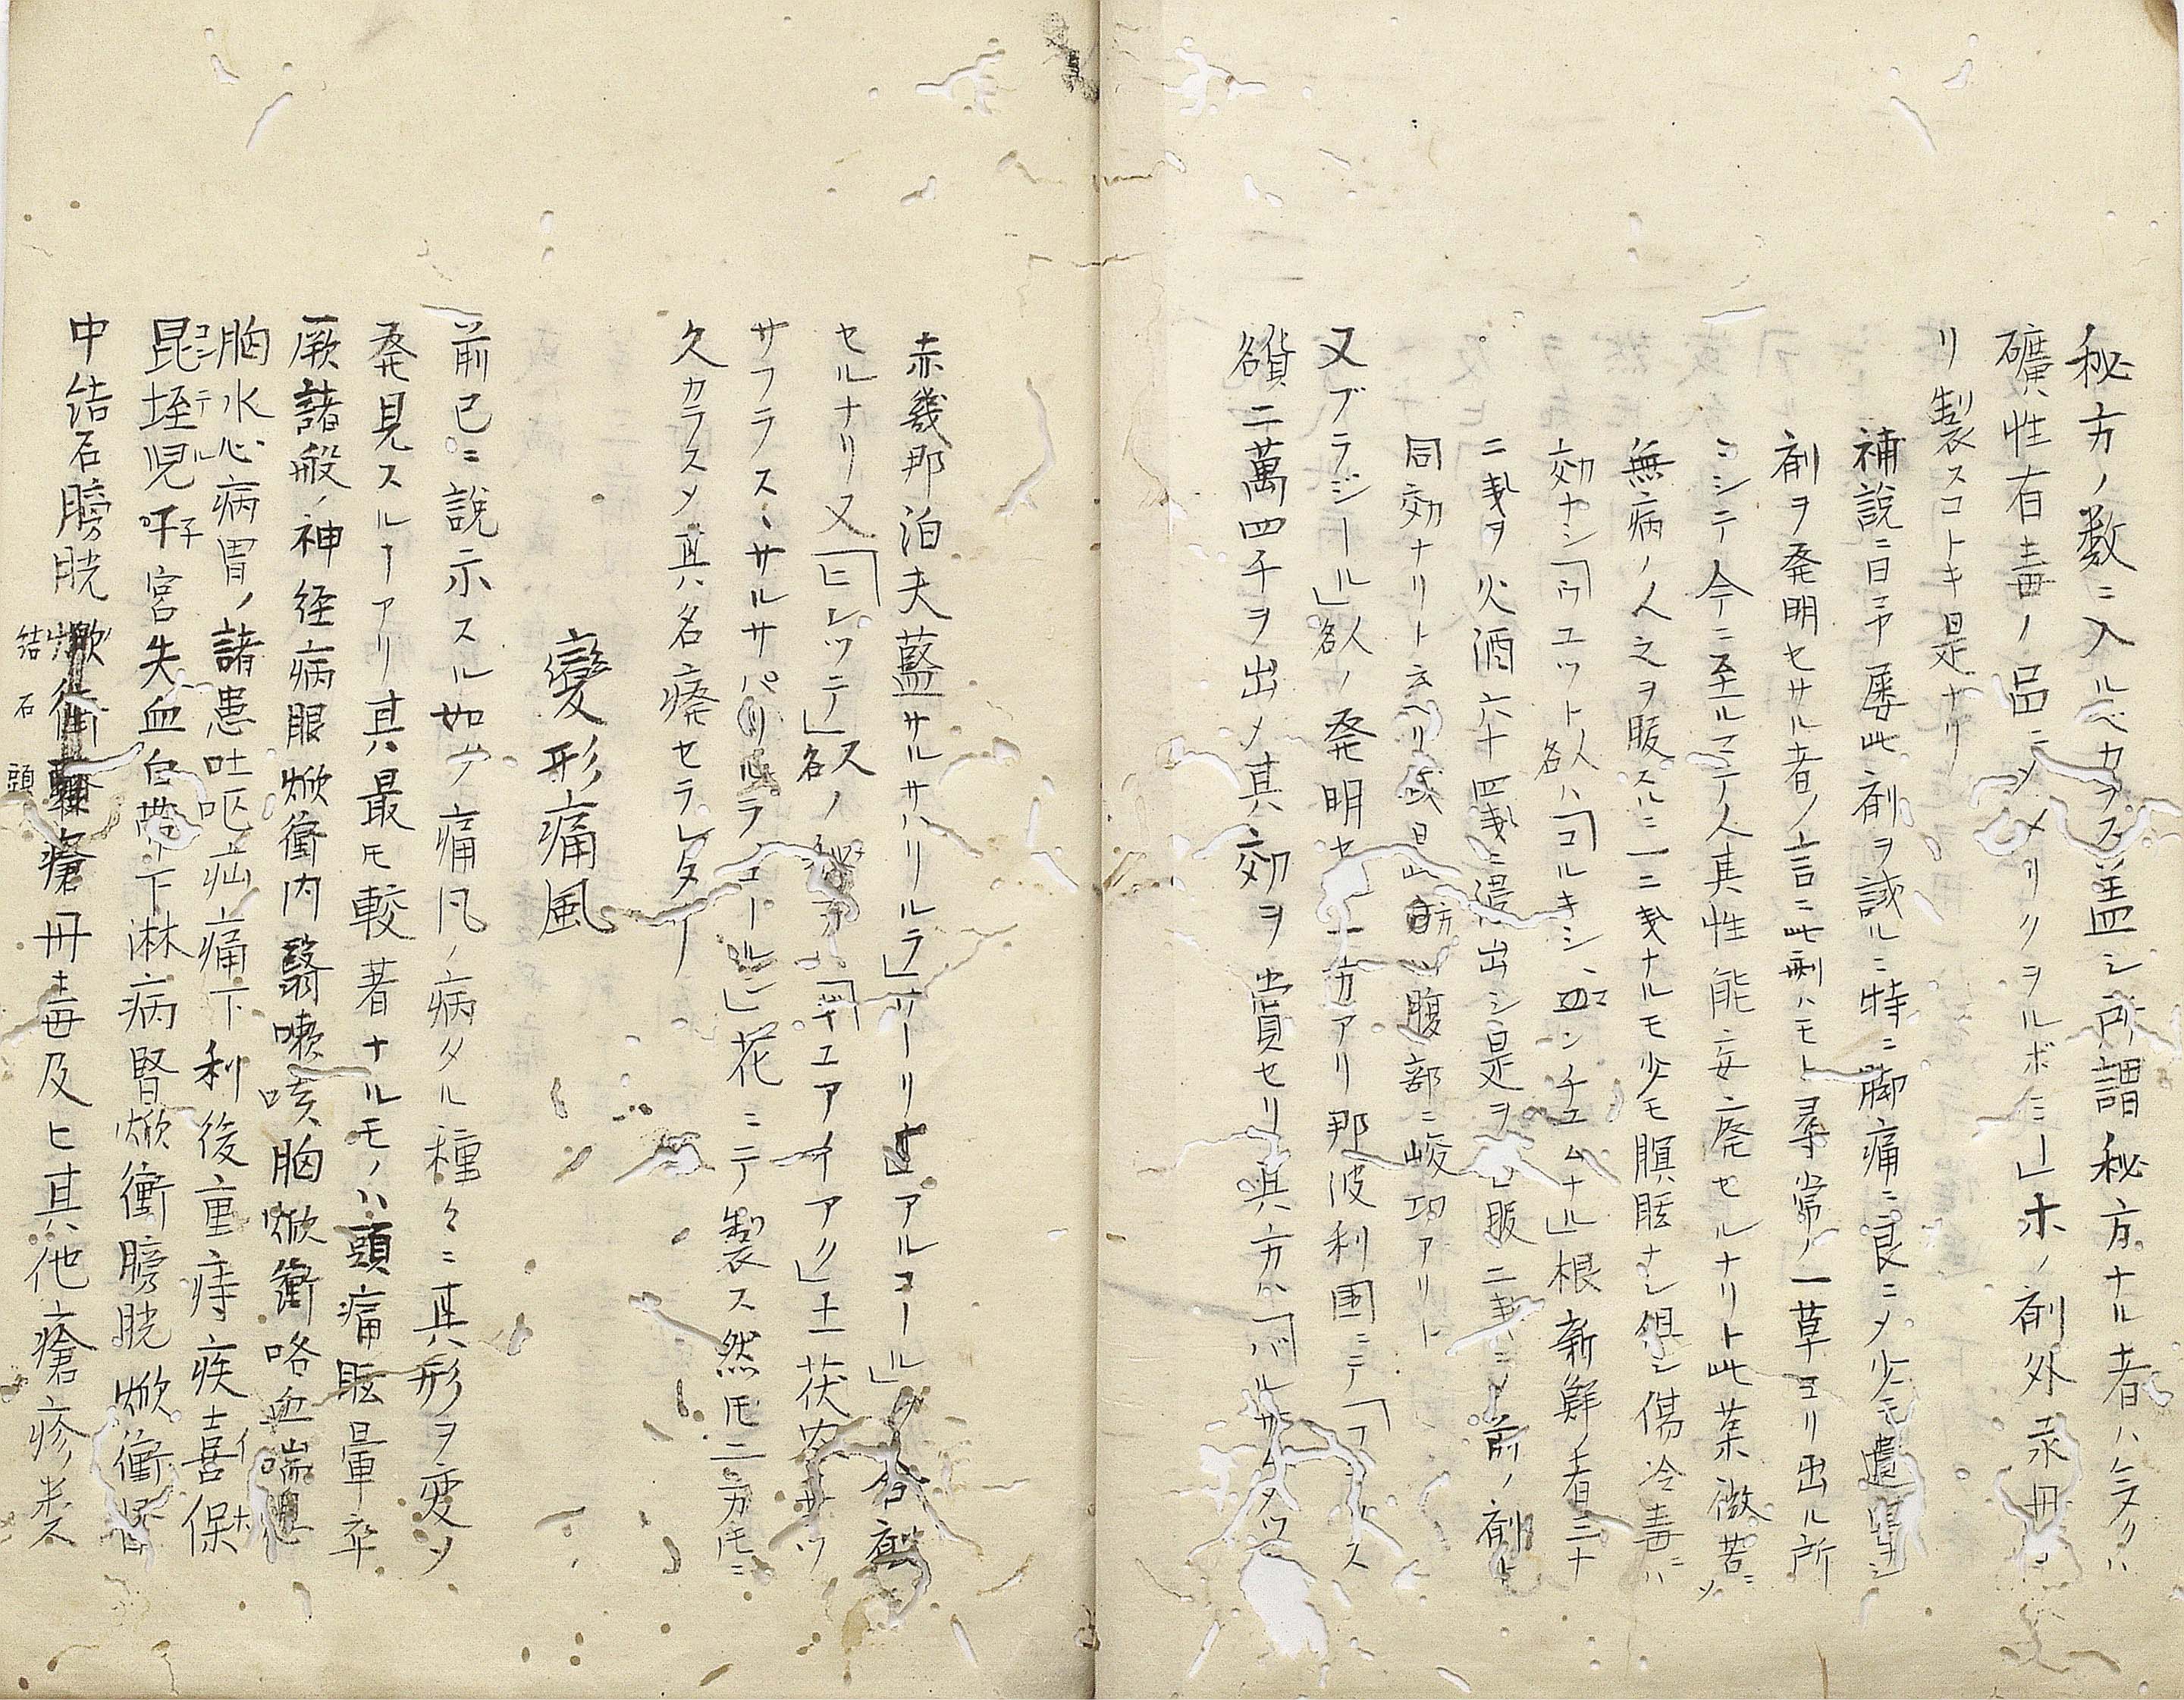 秘方ノ数ニ入ルベカラス盖シ所謂秘方ナル者ハ多クハ
礦性有毒ノ品ニメメリクヲルボミー」ホノ剤外汞丹
リ製スコトキ是ナリ
補説ニ曰予屡此剤ヲ試ルニ特ニ脚痛ニ良ニメ少モ遺
剤ヲ発明セサル者ノ言ニ此剤ハモト尋常ノ一草ヨリ出ル所
ニシテ今ニ至ルマテ人其性能ニ妄廃セルナリト此葉微苦ニソ
無病ノ人之ヲ服スルニ一二戔ナルモ少モ瞑眩ナシ但シ傷冷毒ニハ
効ナシ「ウユツト人名ハ「コルキシ、ンチエムナル」根新鮮者二十
二戔ヲ火酒六十四戔ニ浸出シ是ヲ服二戔ニメ前ノ剤ト
同効ナリト云ヘリ或曰此腹部ニ峻功アリト
又ブラジール」人名ノ発明セ一方アリ那波利国ニテ「フース
貨名二萬四千ヲ出メ其効ヲ賞セリ其方ハ「バルサ
赤幾那泊夫藍サルサハリールラ」アルコール」ク合製
セルナリ又「ヒレツテ」人名ノ秘ヲハ「イユアイアク」土茯苓サツ
サフラス、サルサパリルラ、ユールレ」花ニテ製ス然モ二方モニ
久カラスメ其名廃セラレタ
變形痛風
前已ニ說示スル如ク痛风ノ病タル種々ニ其形ヲ変ソ
発見スルーアリ其最モ較著ナルモノハ頭痛眩暈卒
厥諸般ノ神経病眼焮衝内翳嗽咳胸焮衝咯血喘息
胸水心病胃ノ諸患吐呕疝痛下利後重痔疾喜イ保ホ
昆コン垤テ児ル吇子宮失血白帯下淋病腎焮衝膀胱焮衝腎
中結石膀胱結石頭瘡丹毒及ヒ其他瘡疹类